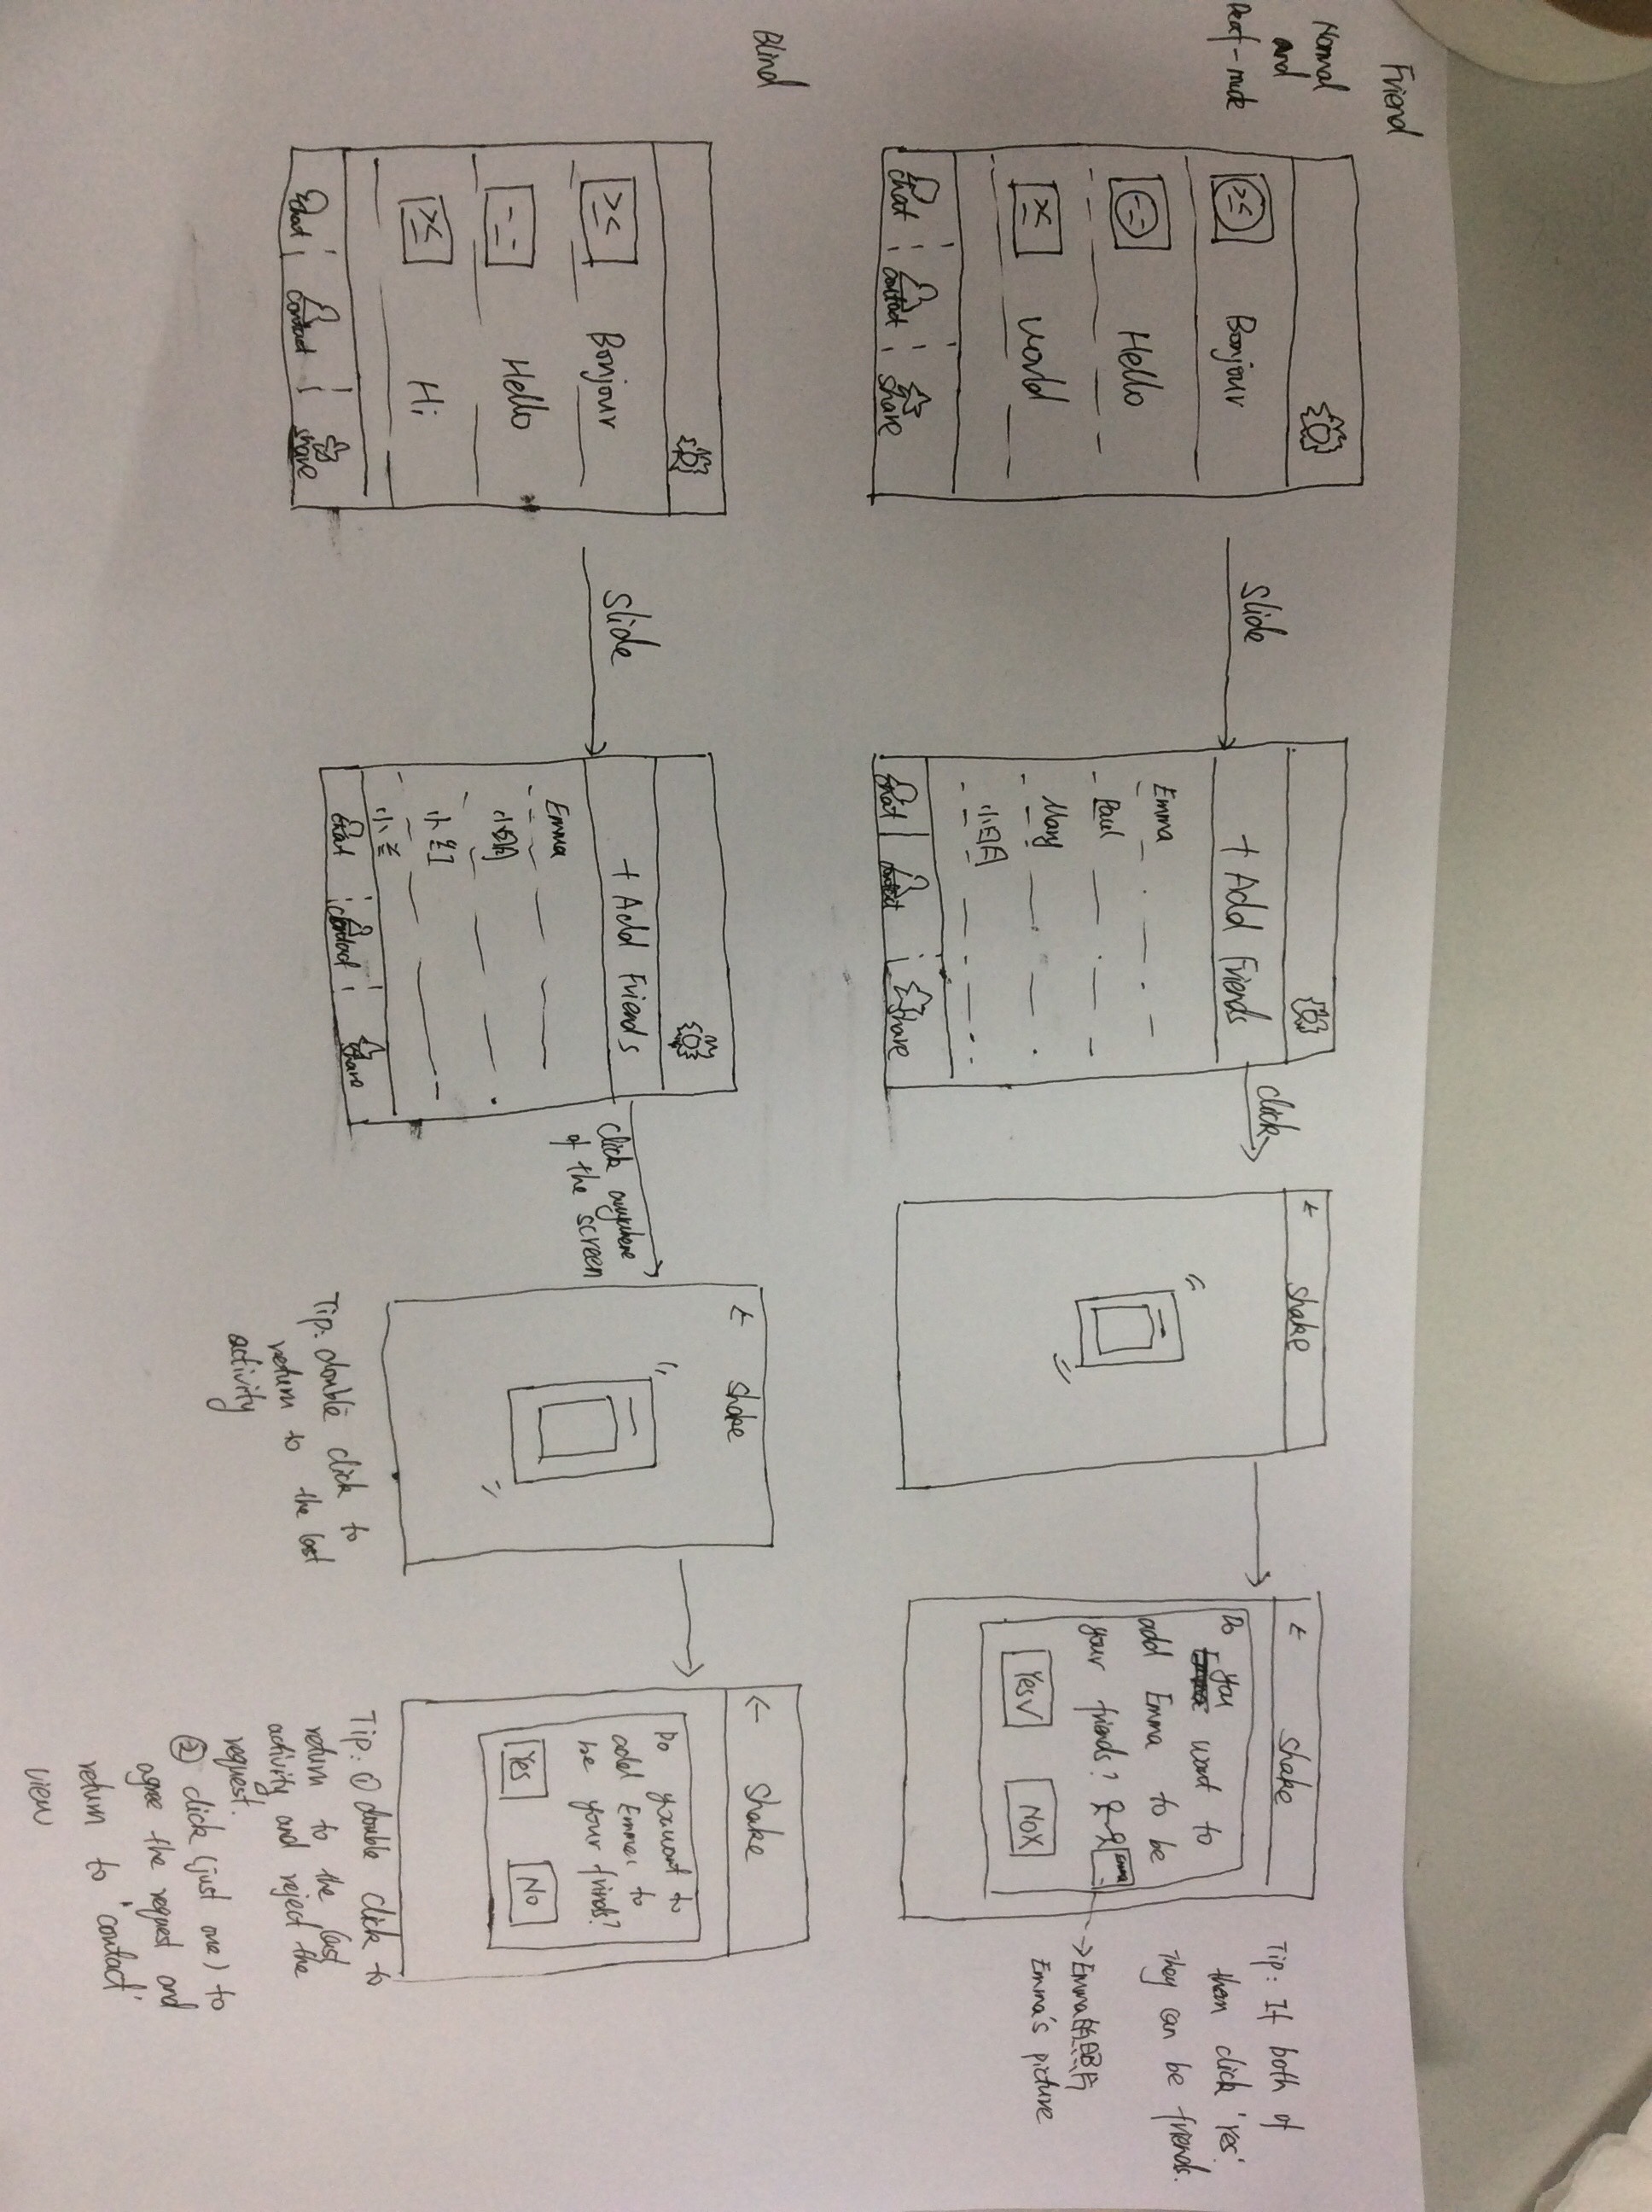 Friend
Normal
and
Deaf-mute
Bonjour
Hello
world
chat
contact
share
slide
+ Add Friends
Emma
Paul
Mary
小明
chat
contact
share
click
← shake
← shake
Do you want to
add Emma to be
your friends?
Emma
Yes√
No X
Tip: If both of
them click 'Yes'.
They can be friends.
→ Emma的照片
Emma's picture
Blind
Bonjour
Hello
Hi
chat
contact
share
slide
+ Add Friends
Emma
小明
小红
小兰
chat
contact
share
click anywhere
of the screen
← shake
Tip: double click to
return to the last
activity
← shake
Do you want to
add Emma to
be your friends?
Yes
No
Tip: ① double click to
return to the last
activity and reject the
request.
② click (just one) to
agree the request and
return to 'contact'
view